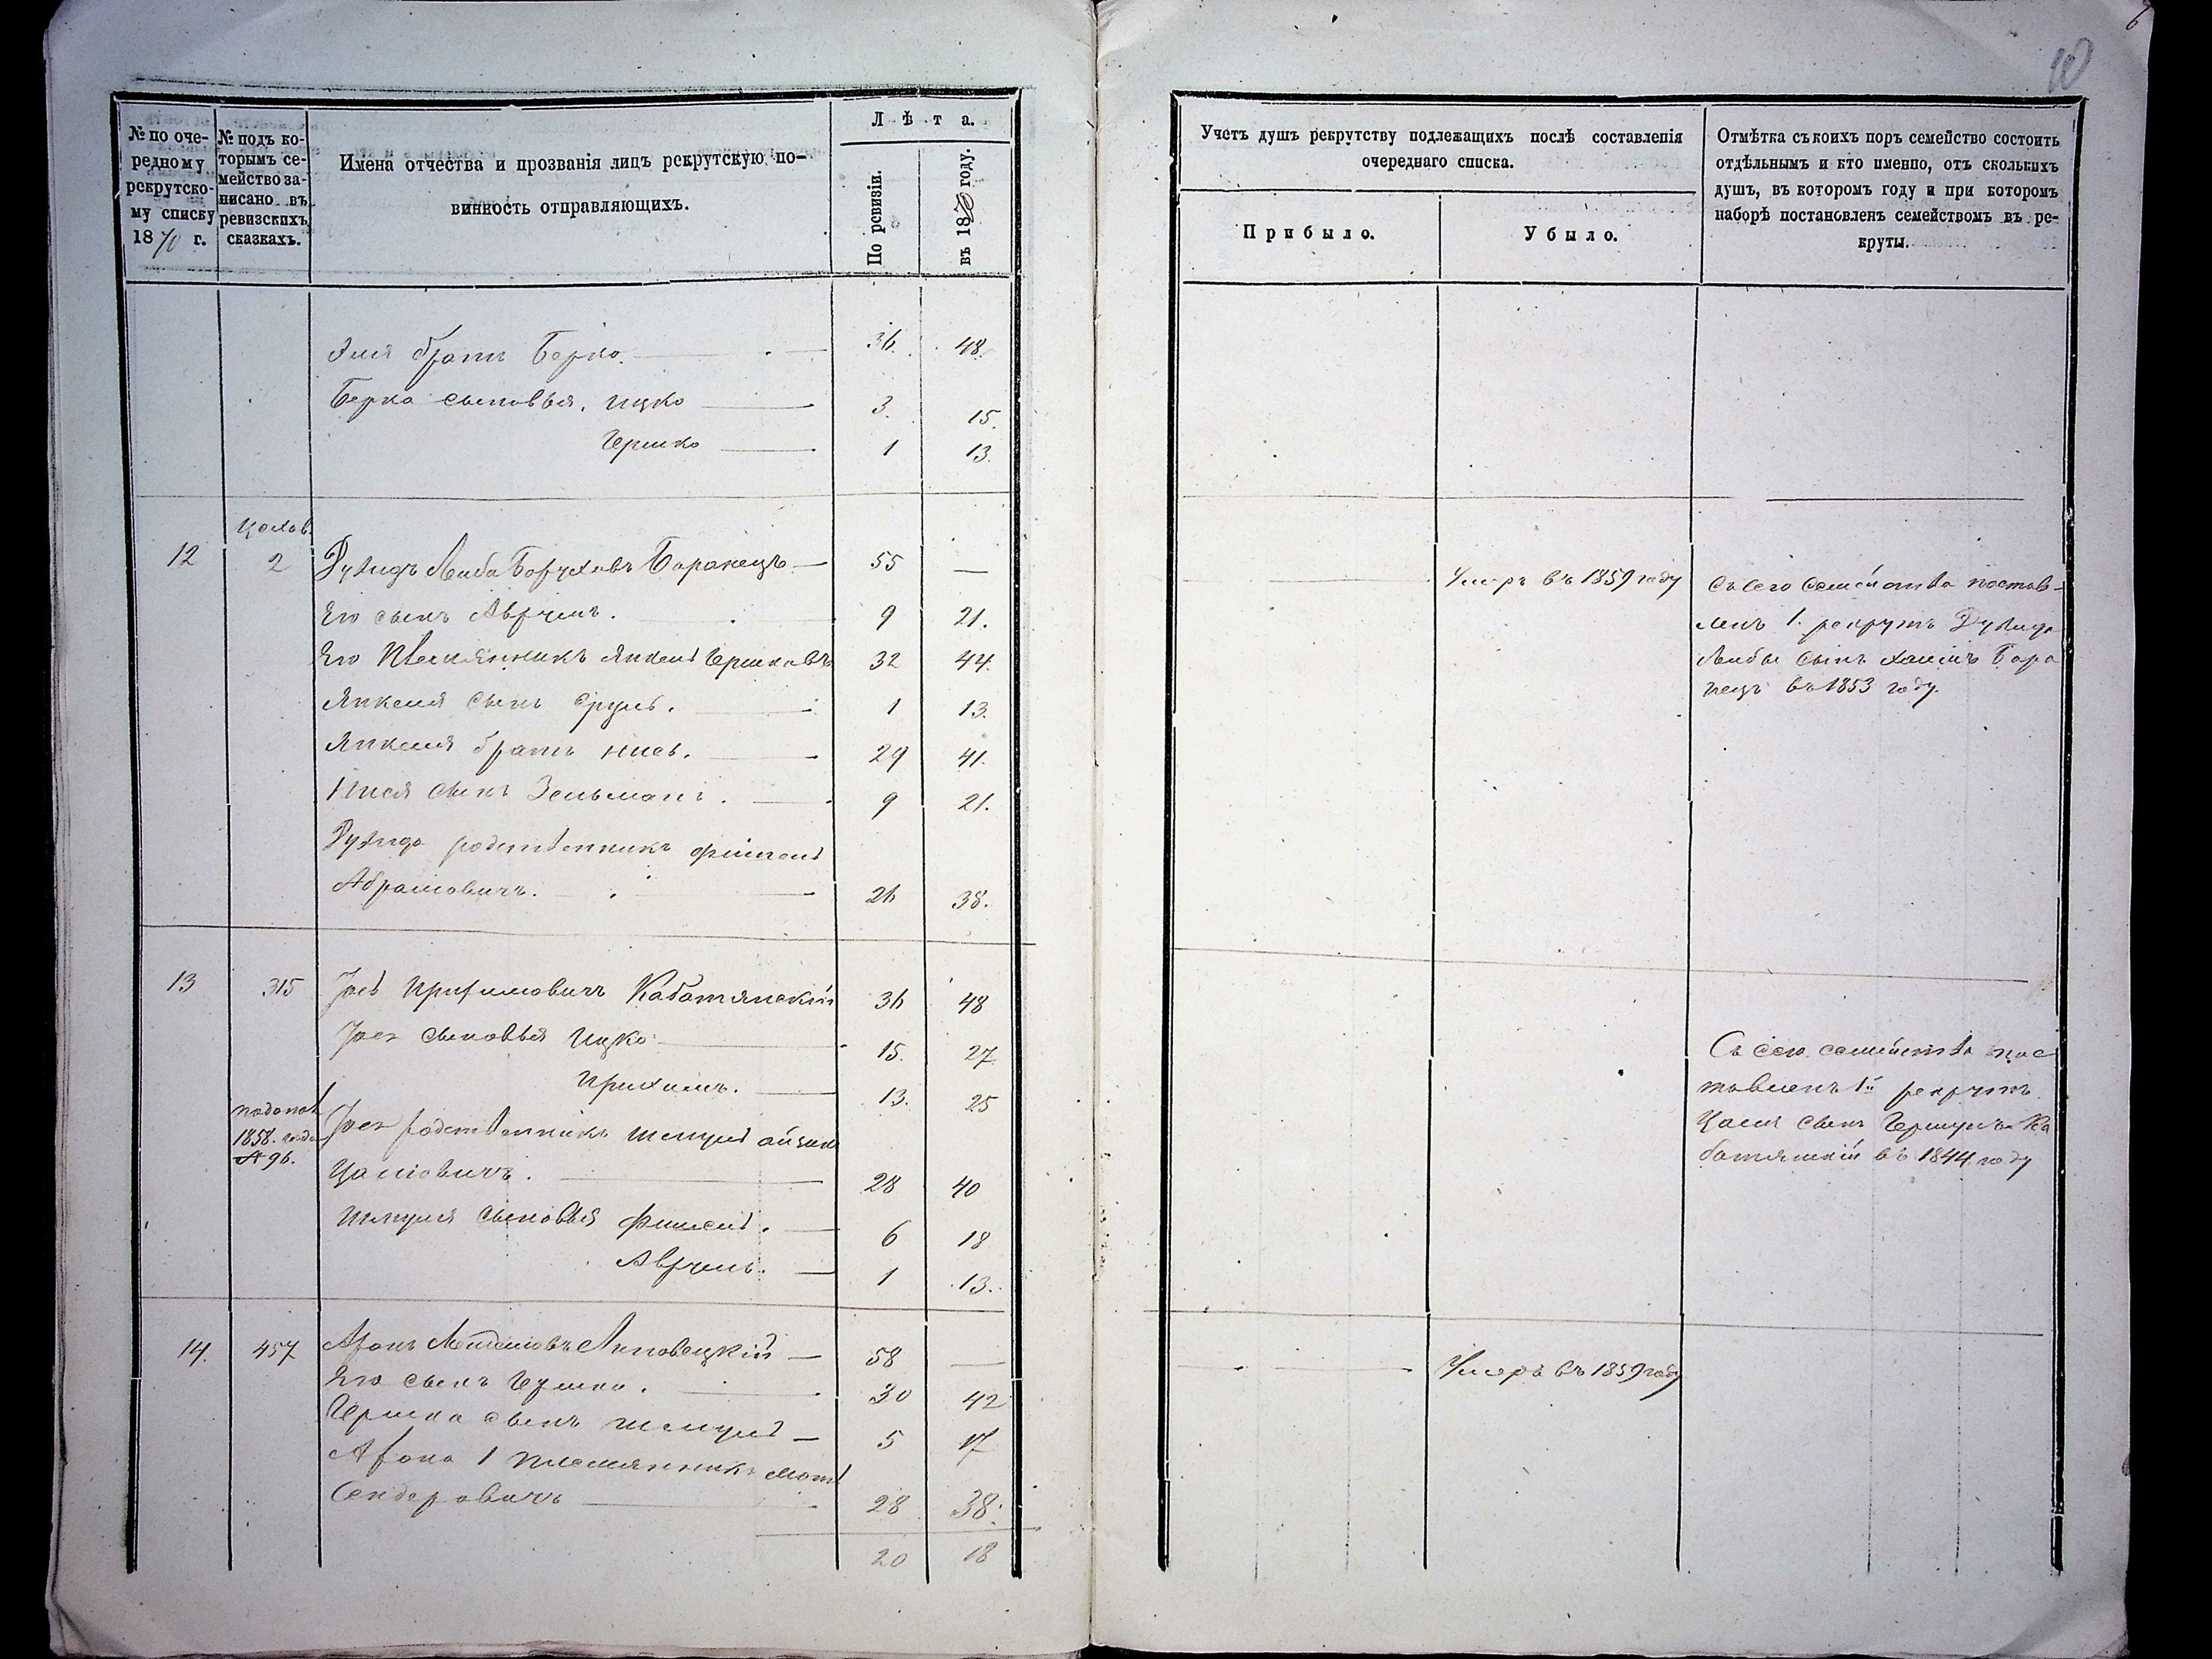 № по оче-
редному
рекрутско-
му списку
1870 г.
№ подъ ко-
торымъ се-
мейство за-
писано въ
ревизскихъ
сказкахъ.
Имена отчества и прозванія лицъ рекрутскую по-
винность отправляющихъ.
Лѣта.
По ревизіи.
въ 1870 году.
Эля братъ Берко 36. 48.
Берка сыновья. Ицко 3. 15.
Гершко 1 13.
12 2 Дувидъ Лейба Боруховъ Баранецъ 55 —
Его сынъ Аврумъ. 9 21.
Его племянникъ Янкель Гершковъ 32 44.
Янкеля сынъ Сруль. 1 13.
Янкеля братъ Нись. 29 41.
Нися сынъ Зельманъ. 9 21.
Дувида родственникъ Фишель
Абрамовичъ. 26 38.
13 315 Іось Кабатянскій 36 48
сыновья Ицко 15. 27
13. 25
1858. года
№ 96.
родственникъ Шмуль
28 40
Шмуля сыновья Фишель. 6 18
Аврумъ. 1 13.
14. 457 Аронъ Липовецкій 58 —
Его сынъ Гершко. 30 42
Гершка сынъ Шмуль 5 17
Арона 1 племянникъ
Сендеровичъ 28 38.
20 18
6
10
Учетъ душъ рекрутству подлежащихъ послѣ составленія
очереднаго списка.
Прибыло.
Убыло.
Отмѣтка съ коихъ поръ семейство состоитъ
отдѣльнымъ и кто именно, отъ сколькихъ
душъ, въ которомъ году и при которомъ
наборѣ постановленъ семействомъ въ ре-
круты.
Умеръ въ 1859 году
Съ сего семейства постав-
ленъ 1. рекрутъ Дувида
Лейбы сынъ Хаимъ Бара
нецъ въ 1853 году.
Съ сего семейства пос
тавленъ 1й рекрутъ
сынъ Ка
батянскій въ 1844 году
Умеръ въ 1859 году